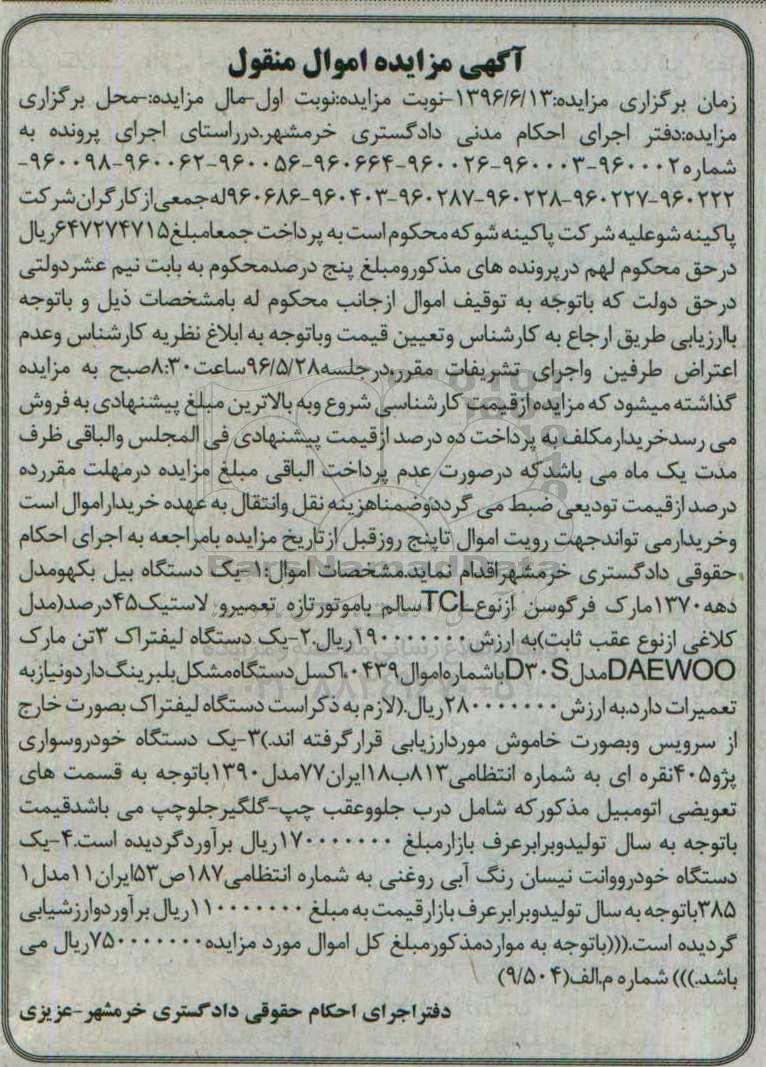 آگهی مزایده اموال منقول
زمان برگزاری مزایده:۱۳۹۶/۶/۱۳-نوبت مزایده:نوبت اول-مال مزایده:-محل برگزاری
مزایده:دفتر اجرای احکام مدنی دادگستری خرمشهر.درراستای اجرای پرونده به
شماره۹۶۰۰۰۲-۹۶۰۰۰۳-۹۶۰۰۲۶-۹۶۰۶۶۴-۹۶۰۰۵۶-۹۶۰۰۶۲-۹۶۰۰۹۸-
۹۶۰۲۲۲-۹۶۰۲۲۷-۹۶۰۲۲۸-۹۶۰۲۸۷-۹۶۰۴۰۳-۹۶۰۶۸۶له جمعی از کارگران شرکت
پاکینه شوعلیه شرکت پاکینه شو که محکوم است به پرداخت جمعامبلغ۶۴۷۲۷۴۷۱۵ریال
درحق محکوم لهم درپرونده های مذکورومبلغ پنج درصدمحکوم به بابت نیم عشردولتی
درحق دولت که باتوجه به توقیف اموال ازجانب محکوم له بامشخصات ذیل و باتوجه
باارزیابی طریق ارجاع به کارشناس وتعیین قیمت وباتوجه به ابلاغ نظریه کارشناس وعدم
اعتراض طرفین واجرای تشریفات مقرردرجلسه۹۶/۵/۲۸ساعت۸:۳۰صبح به مزایده
گذاشته میشود که مزایده ازقیمت کارشناسی شروع وبه بالاترین مبلغ پیشنهادی به فروش
می رسدخریدارمکلف به پرداخت ده درصد ازقیمت پیشنهادی فی المجلس والباقی ظرف
مدت یک ماه می باشدکه درصورت عدم پرداخت الباقی مبلغ مزایده درمهلت مقررده
درصد ازقیمت تودیعی ضبط می گرددوضمناهزینه نقل وانتقال به عهده خریداراموال است
وخریدارمی تواندجهت رویت اموال تاپنج روزقبل ازتاریخ مزایده بامراجعه به اجرای احکام
حقوقی دادگستری خرمشهراقدام نماید.مشخصات اموال:۱-یک دستگاه بیل بکهومدل
دهه۱۳۷۰مارک فرگوسن ازنوعTCLسالم باموتورتازه تعمیرو لاستیک۴۵درصد(مدل
کلاغی ازنوع عقب ثابت)به ارزش ۱۹۰۰۰۰۰۰۰ریال.۲-یک دستگاه لیفتراک ۳تن مارک
DAEWOOمدلD۳۰Sباشماره اموال۰۴۳۹،اکسل دستگاه مشکل بلبرینگ داردونیازبه
تعمیرات دارد.به ارزش۲۸۰۰۰۰۰۰۰ریال.(لازم به ذکراست دستگاه لیفتراک بصورت خارج
از سرویس وبصورت خاموش موردارزیابی قرارگرفته اند.)۳-یک دستگاه خودروسواری
پژو۴۰۵نقره ای به شماره انتظامی۸۱۳ب۱۸ایران۷۷مدل۱۳۹۰باتوجه به قسمت های
تعویضی اتومبیل مذکورکه شامل درب جلووعقب چپ-گلگیرجلوچپ می باشدقیمت
باتوجه به سال تولیدوبرابرعرف بازارمبلغ ۱۷۰۰۰۰۰۰۰ریال برآوردگردیده است.۴-یک
دستگاه خودرووانت نیسان رنگ آبی روغنی به شماره انتظامی۱۸۷ص۵۳ایران۱۱مدل۱
۳۸۵باتوجه به سال تولیدوبرابرعرف بازارقیمت به مبلغ ۱۱۰۰۰۰۰۰۰ریال برآوردوارزشیابی
گردیده است.(((باتوجه به مواردمذکورمبلغ کل اموال مورد مزایده۷۵۰۰۰۰۰۰۰ریال می
باشد.))) شماره م.الف(۹/۵۰۴)
دفتراجرای احکام حقوقی دادگستری خرمشهر-عزیزی
ParsNamadData